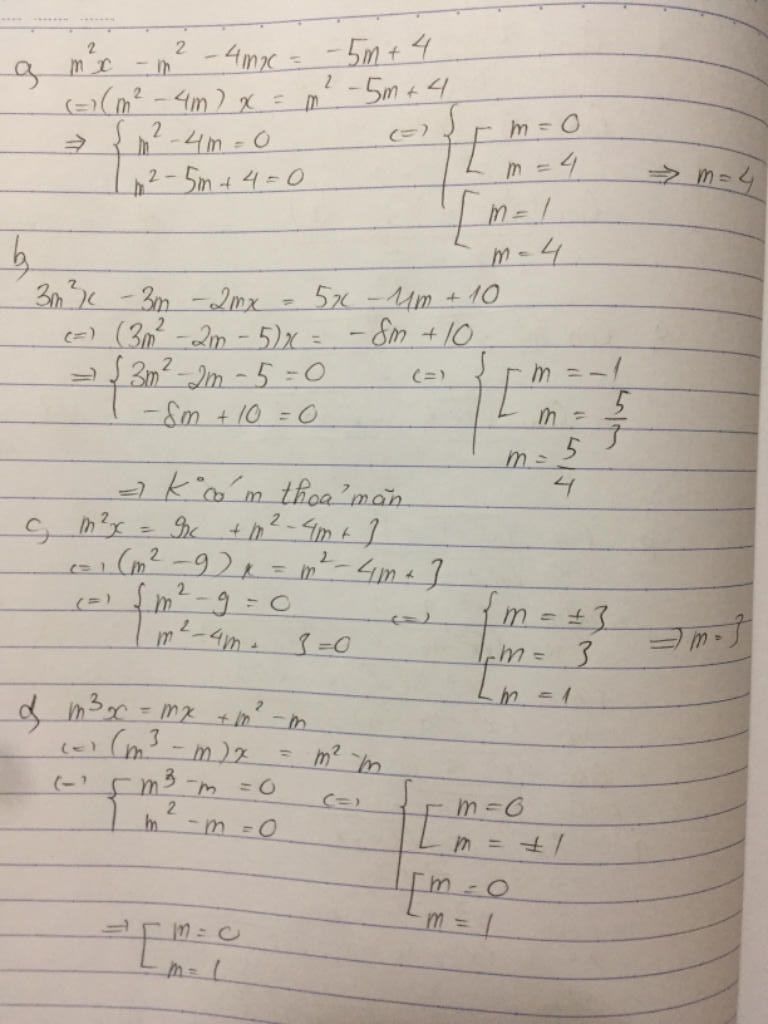 a, m²x - m² - 4mx = -5m + 4
<=> (m² - 4m) x = m² - 5m + 4
=> { m² - 4m = 0 <=> { [ m = 0
m² - 5m + 4 = 0 m = 4 => m = 4
[ m = 1
m = 4
b,
3m²x - 3m - 2mx = 5x - 11m + 10
<=> (3m² - 2m - 5)x = -8m + 10
=> { 3m² - 2m - 5 = 0 <=> { [ m = -1
-8m + 10 = 0 m = 5/3
m = 5/4
=> K° có m thoả mãn
c, m²x = 9x + m² - 4m + 3
<=> (m² - 9) x = m² - 4m + 3
<=> { m² - 9 = 0 <=> { m = ±3 => m = 3
m² - 4m + 3 = 0 [ m = 3
m = 1
d, m³x = mx + m² - m
<=> (m³ - m) x = m² - m
<=> { m³ - m = 0 <=> { [ m = 0
m² - m = 0 m = ±1
[ m = 0
m = 1
=> [ m = 0
m = 1